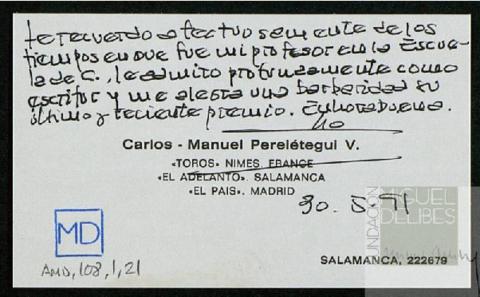 le recuerdo afectuosamente de los
tiempos en que fue mi profesor en la Escue-
la de C., le admiro profundamente como
escritor y me alegra una barbaridad su
último y reciente premio. Enhorabuena.
Carlos - Manuel Perelétegui V.
«TOROS» NIMES. FRANCE
«EL ADELANTO». SALAMANCA
«EL PAIS». MADRID
30. 5. 91
FUNDACIÓN
MIGUEL
DELIBES
MD
AMD, 108, 1, 21
SALAMANCA, 222679